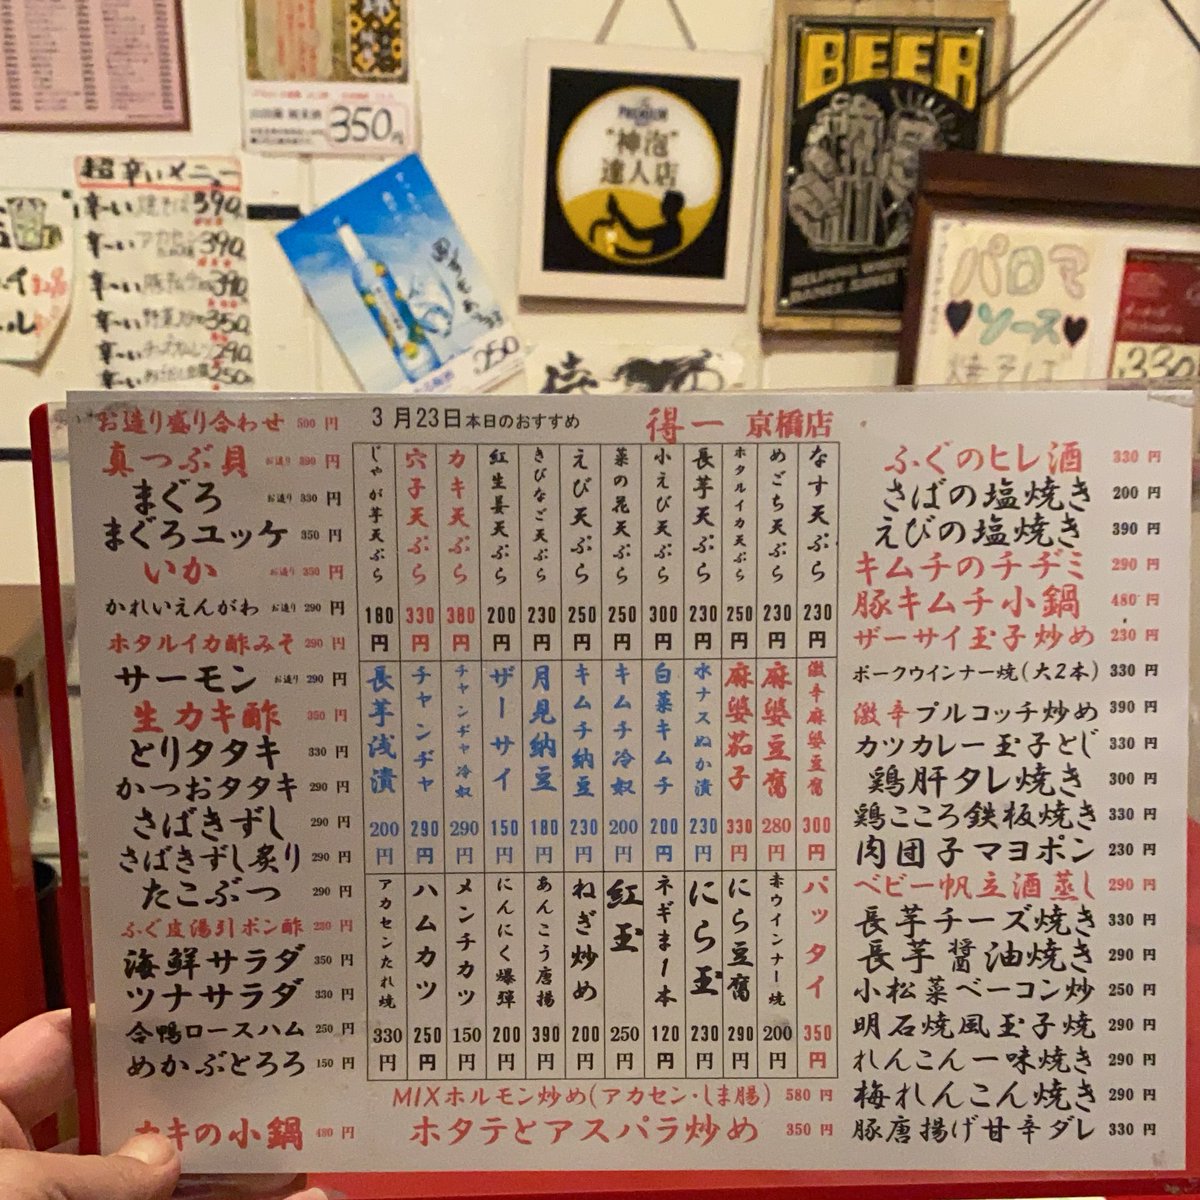 350円
超辛いメニュー
390
390
390
350
290
250
PREMIUM
"神泡"
達人店
BEER
パロマ
ソース
焼そば
330
250
3月23日本日のおすすめ
得一 京橋店
お造り盛り合わせ 590円
真つぶ貝 お造り 390円
まぐろ お造り 330円
まぐろユッケ 350円
いか お造り 350円
かれいえんがわ お造り 290円
ホタルイカ酢みそ 290円
サーモン お造り 290円
生カキ酢 350円
とりタタキ 330円
かつおタタキ 290円
さばきずし 290円
さばきずし炙り 290円
たこぶつ 290円
ふぐ皮湯引ポン酢 280円
海鮮サラダ 350円
ツナサラダ 330円
合鴨ロースハム 250円
めかぶとろろ 150円
カキの小鍋 480円
なす天ぷら 230円
めごち天ぷら 230円
ホタルイカ天ぷら 250円
長芋天ぷら 230円
小えび天ぷら 300円
菜の花天ぷら 250円
えび天ぷら 250円
きびなご天ぷら 230円
紅生姜天ぷら 200円
カキ天ぷら 380円
穴子天ぷら 330円
じゃが芋天ぷら 180円
激辛麻婆豆腐 300円
麻婆豆腐 280円
麻婆茄子 330円
水ナスぬか漬 230円
白菜キムチ 200円
キムチ冷奴 200円
キムチ納豆 230円
月見納豆 180円
ザーサイ 150円
チャンヂャ冷奴 290円
チャンヂャ 290円
長芋浅漬 200円
パッタイ 350円
赤ウインナー焼 200円
にら豆腐 290円
にら玉 230円
ネギま1本 120円
紅玉 250円
ねぎ炒め 200円
あんこう唐揚 390円
にんにく爆弾 200円
メンチカツ 150円
ハムカツ 250円
アカセンたれ焼 330円
MIXホルモン炒め(アカセン・しま腸) 580円
ホタテとアスパラ炒め 350円
ふぐのヒレ酒 330円
さばの塩焼き 200円
えびの塩焼き 390円
キムチのチヂミ 290円
豚キムチ小鍋 480円
ザーサイ玉子炒め 230円
ポークウインナー焼(大2本) 330円
激辛プルコッチ炒め 390円
カツカレー玉子とじ 330円
鶏肝タレ焼き 300円
鶏こころ鉄板焼き 330円
肉団子マヨポン 230円
ベビー帆立酒蒸し 290円
長芋チーズ焼き 330円
長芋醤油焼き 290円
小松菜ベーコン炒 250円
明石焼風玉子焼 290円
れんこん一味焼き 290円
梅れんこん焼き 290円
豚唐揚げ甘辛ダレ 330円